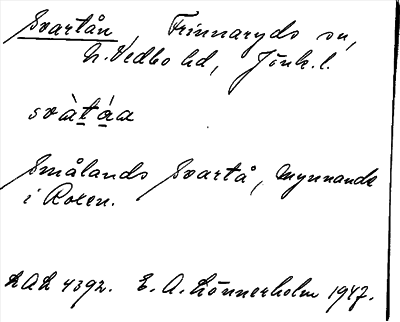 Svartån, Frinnaryds sn,
N. Vedbo hd, Jönk. l.
svàt̠á̠a
Smålands Svartå, mynnande
i Roxen.
LAL 4392. E. A. Lönnerholm 1947.